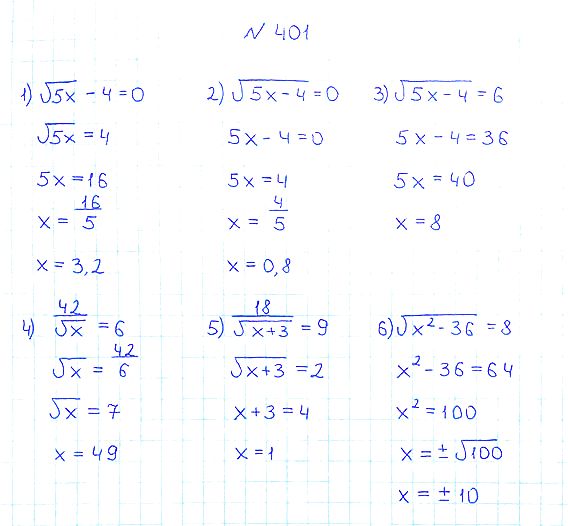 № 401
1) √5x - 4 = 0
√5x = 4
5x = 16
x = 16/5
x = 3,2
2) √5x - 4 = 0
5x - 4 = 0
5x = 4
x = 4/5
x = 0,8
3) √5x - 4 = 6
5x - 4 = 36
5x = 40
x = 8
4) 42/√x = 6
√x = 42/6
√x = 7
x = 49
5) 18/√x+3 = 9
√x+3 = 2
x + 3 = 4
x = 1
6) √x² - 36 = 8
x² - 36 = 64
x² = 100
x = ± √100
x = ± 10